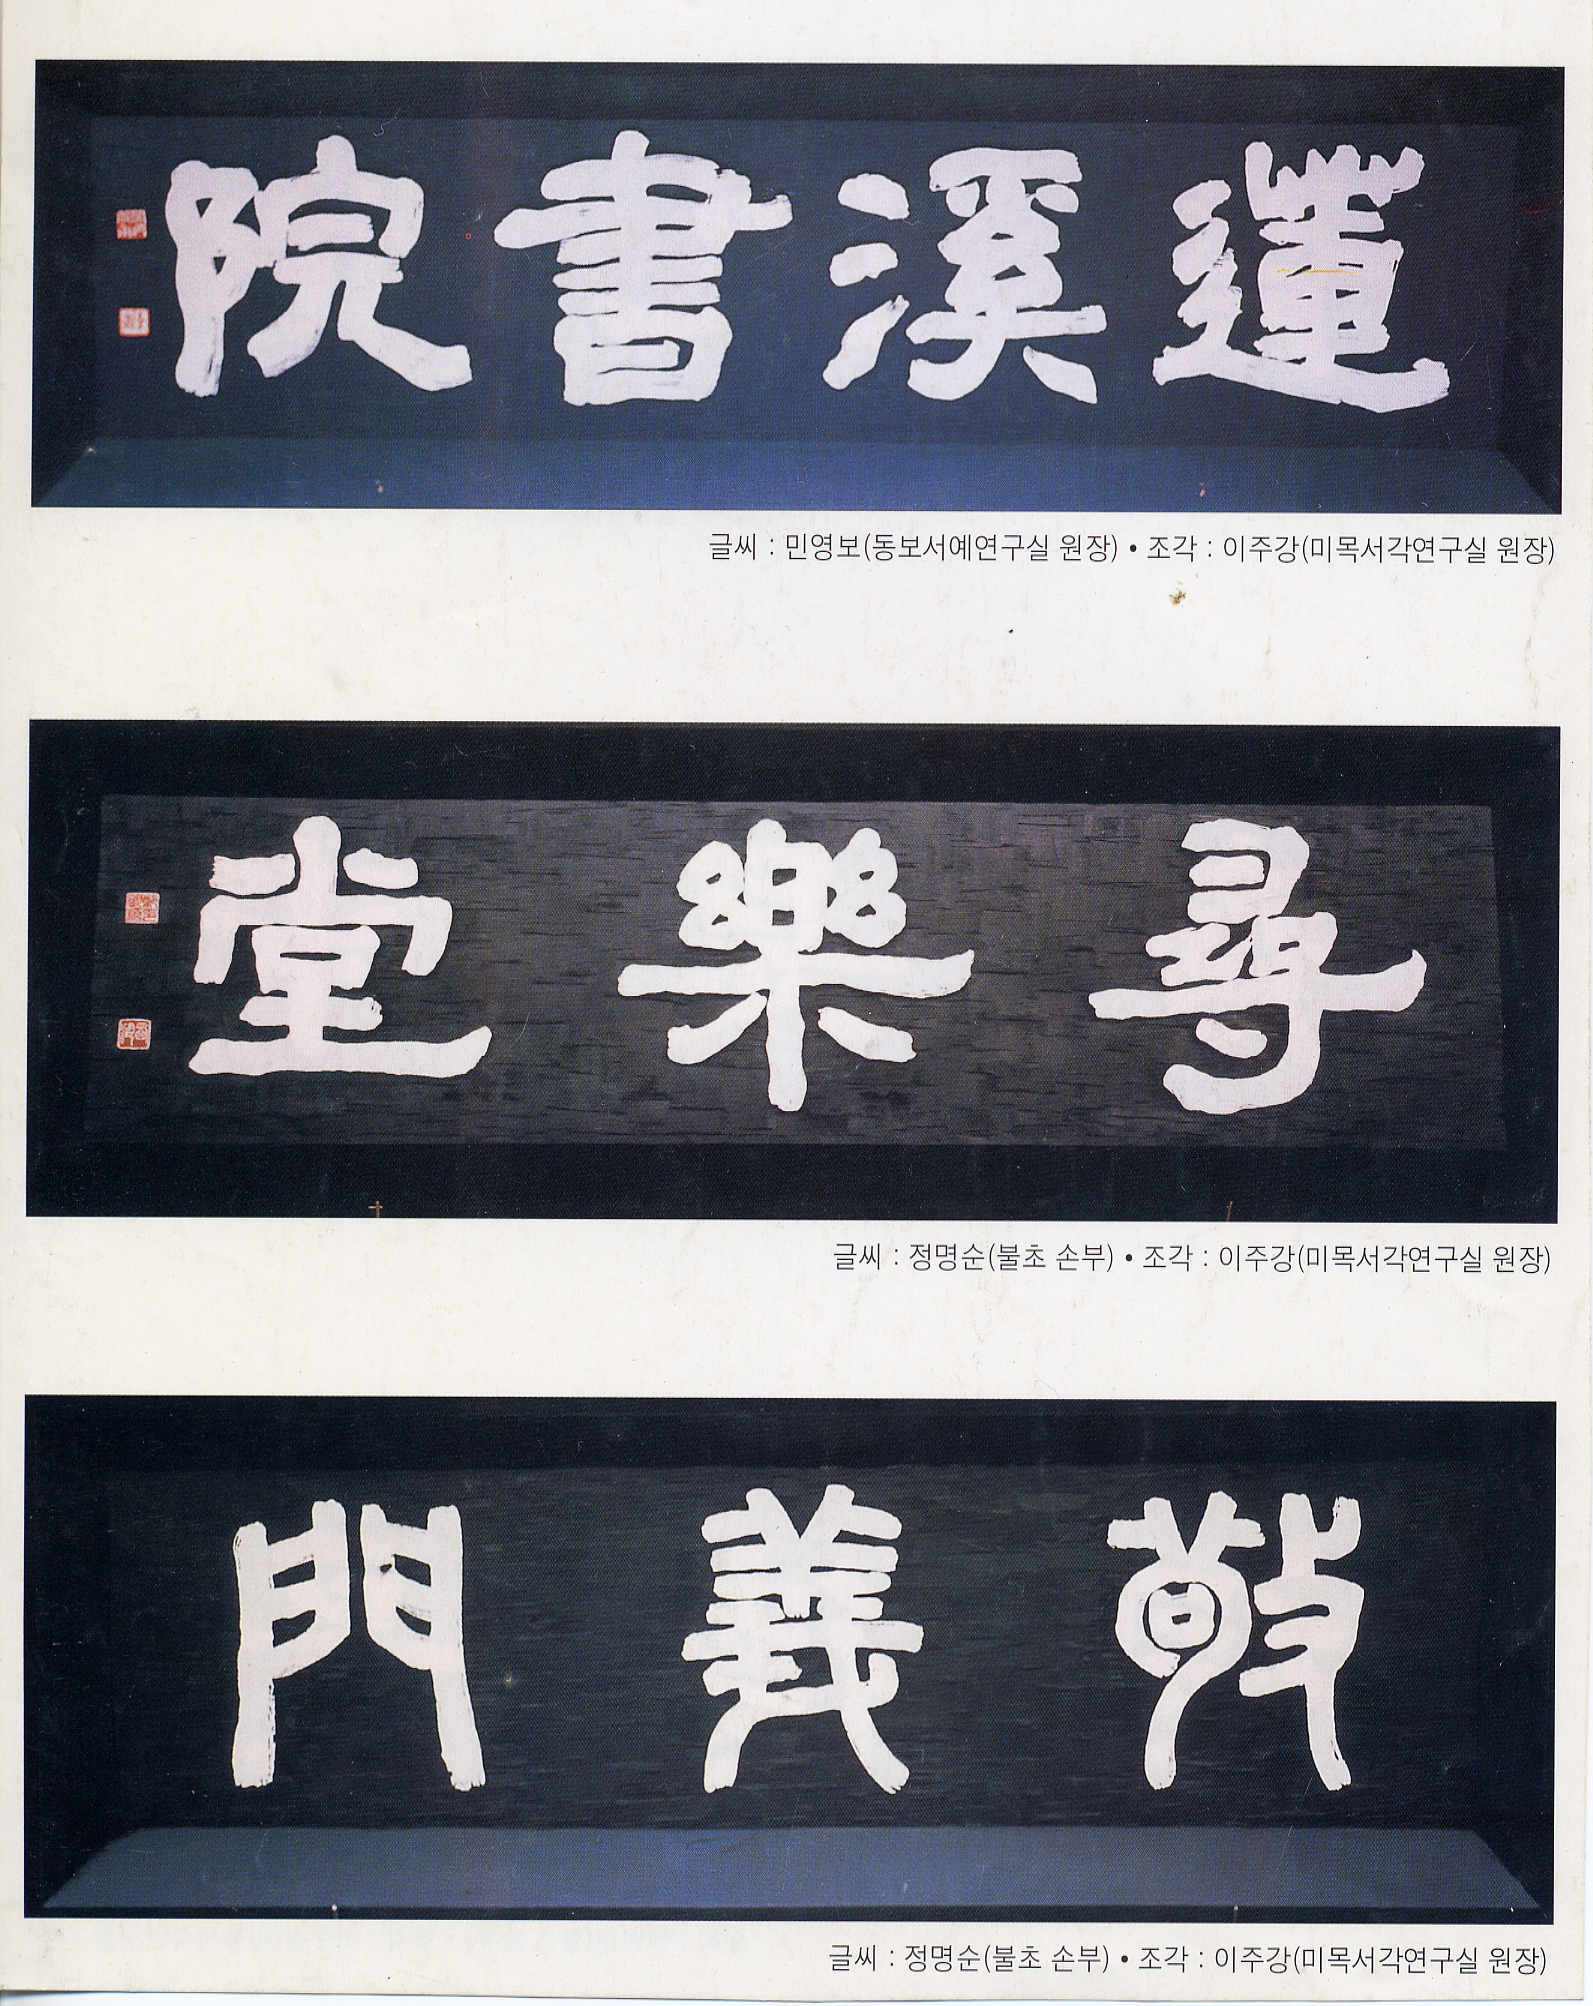 蓮溪書院
글씨 : 민영보(동보서예연구실 원장) • 조각 : 이주강(미목서각연구실 원장)
尋樂堂
글씨 : 정명순(불초 손부) • 조각 : 이주강(미목서각연구실 원장)
敬義門
글씨 : 정명순(불초 손부) • 조각 : 이주강(미목서각연구실 원장)